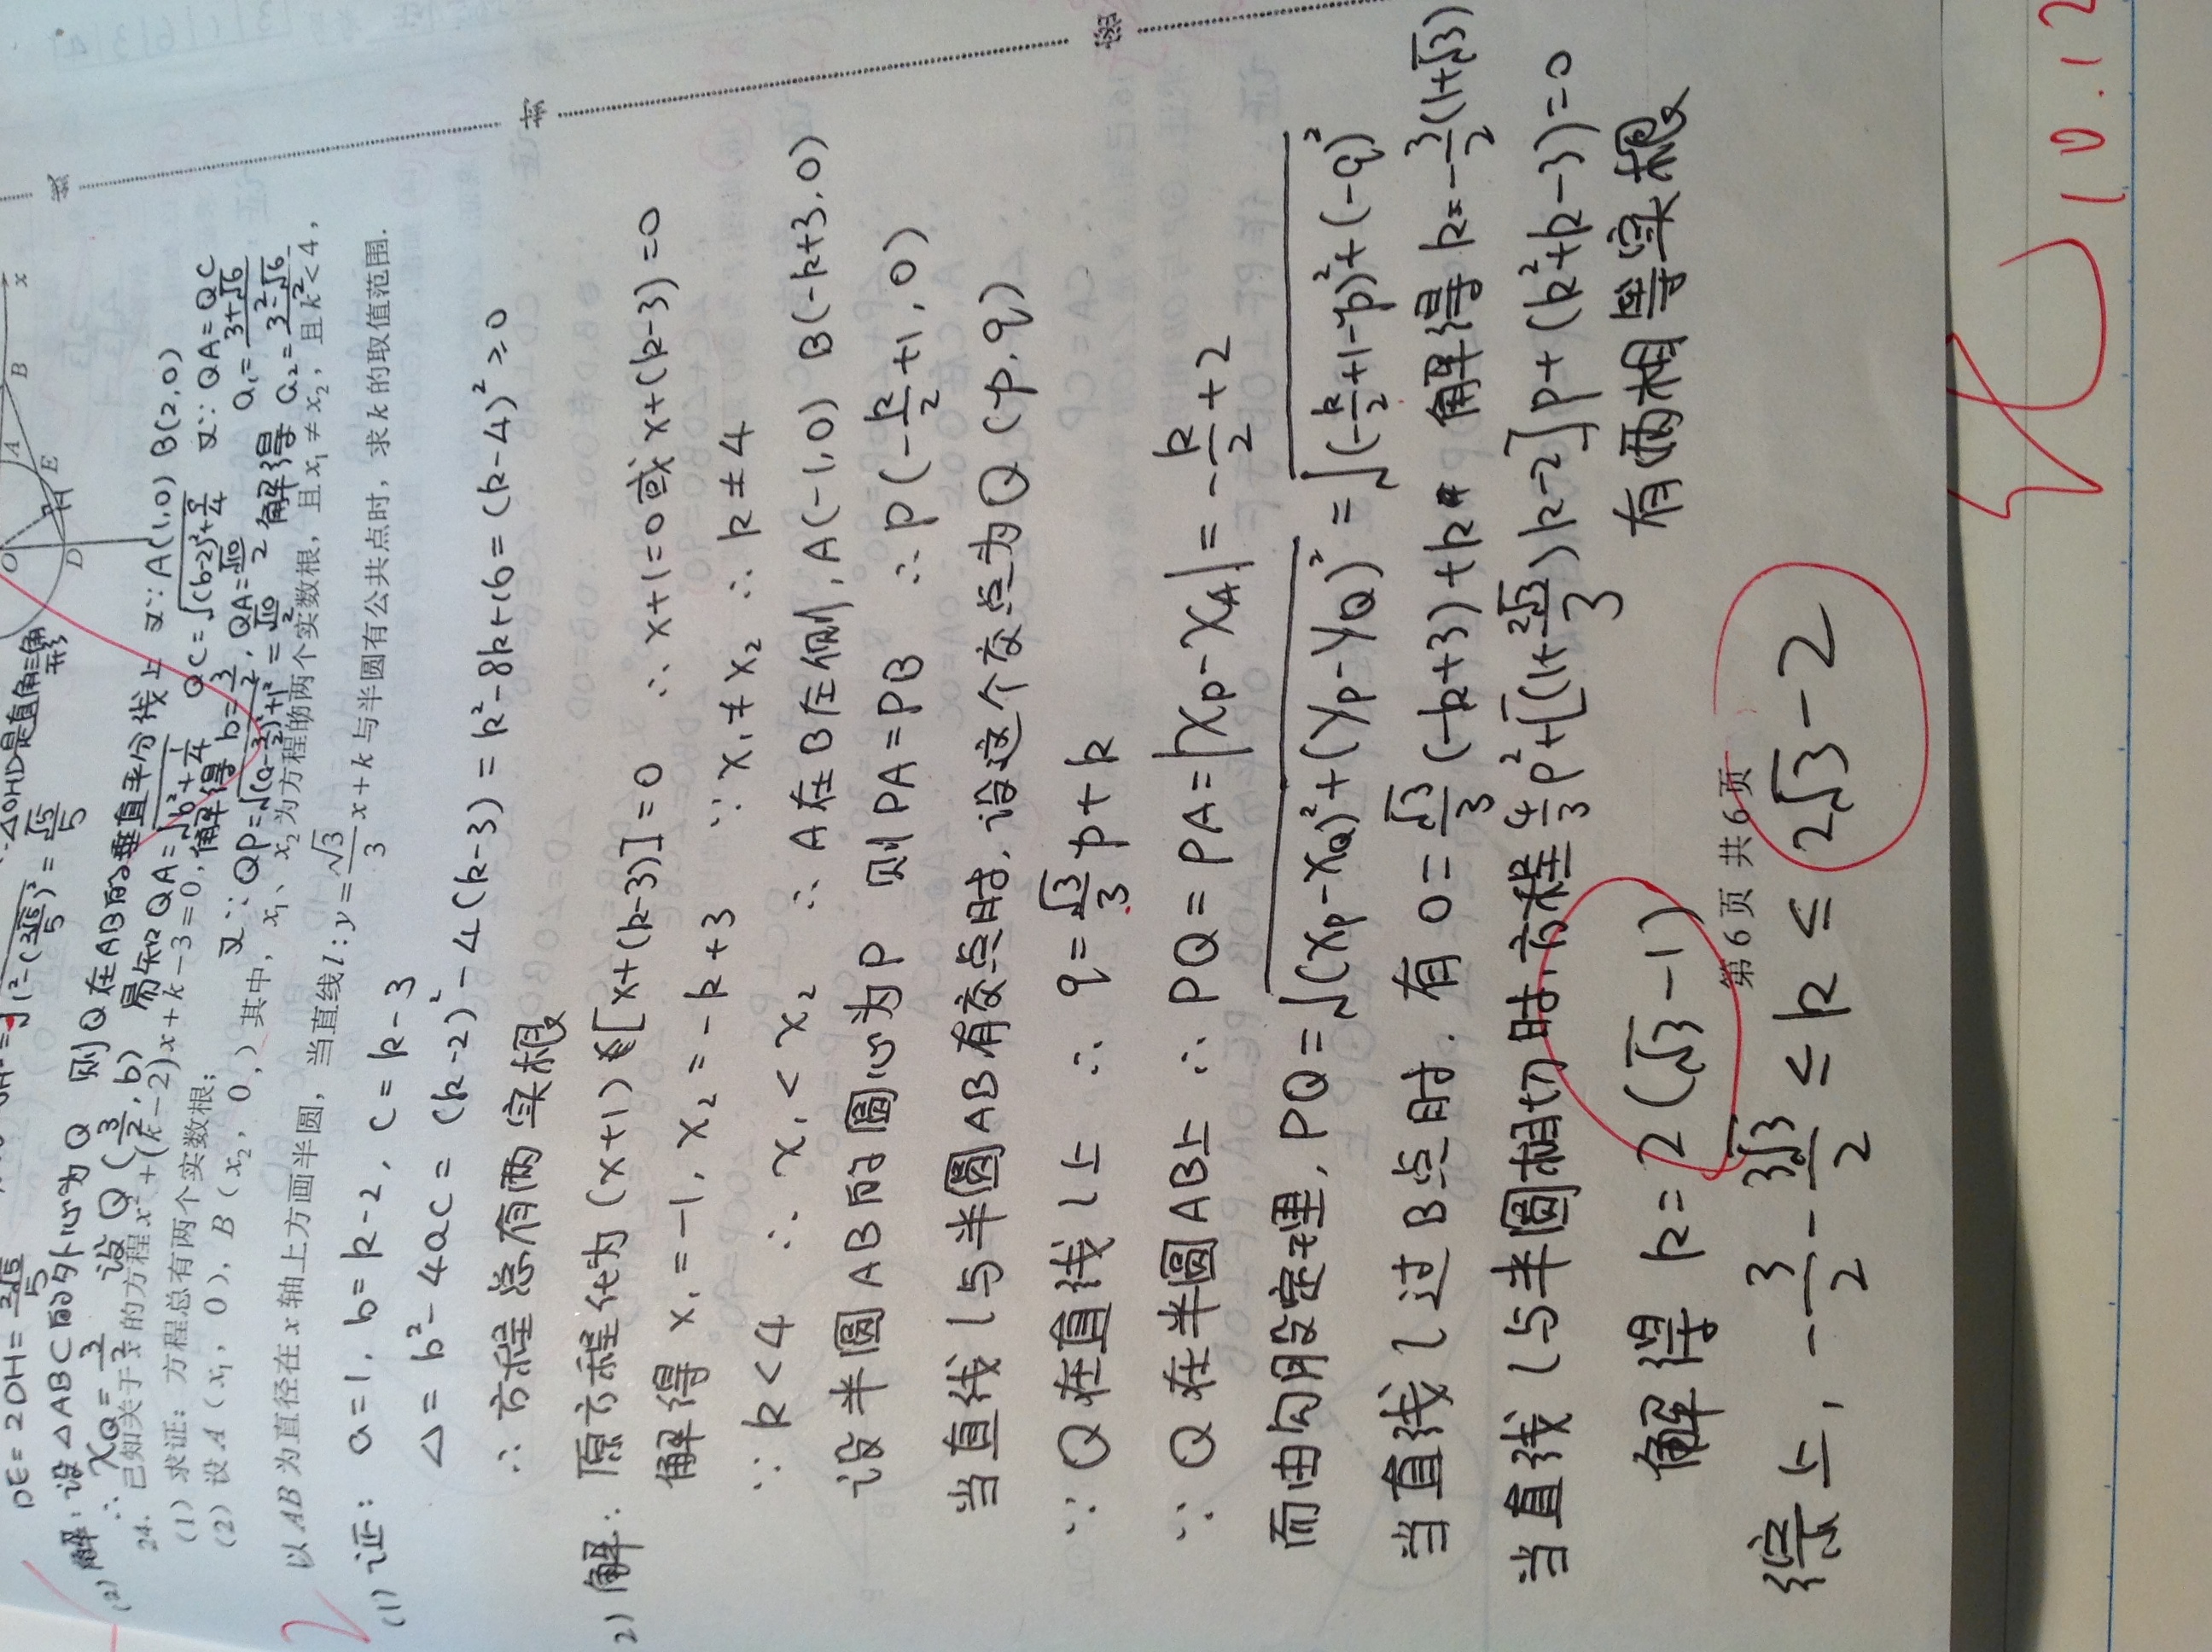 DE=2DH=2√5/5
√(1²-(2√5/5)²)=√5/5
∵△OHD是直角三角形
O A B x
D H E
(2)解:设△ABC的外心为Q 则Q在AB的垂直平分线上 又∵A(1,0) B(2,0)
∴x_Q=3/2 设Q(3/2,b) 易知QA=√(b²+1/4) QC=√((b-2)²+9/4) 又∵QA=QC
解得b=3/2, QA=√10/2
又∵QP=√((a-3/2)²+1²)=√10/2 解得 a₁=(3+√6)/2 a₂=(3-√6)/2
24. 已知关于x的方程x²+(k-2)x+k-3=0,
(1)求证:方程总有两个实数根;
(2)设A(x₁,0),B(x₂,0,)其中,x₁、x₂为方程的两个实数根,且x₁≠x₂,且k<4,
以AB为直径在x轴上方画半圆,当直线l:y=√3/3x+k与半圆有公共点时,求k的取值范围.
2
(1)证: a=1, b=k-2, c=k-3
△=b²-4ac=(k-2)²-4(k-3)=k²-8k+16=(k-4)²≥0
∴方程总有两实根
2)解:原方程化为(x+1)[x+(k-3)]=0 ∴x+1=0或x+(k-3)=0
解得 x₁=-1, x₂=-k+3 ∵x₁≠x₂ ∴k≠4
∵k<4 ∴x₁<x₂ ∴A在B左侧, A(-1,0) B(-k+3,0)
设半圆AB的圆心为P 则PA=PB ∴P(-k/2+1,0)
当直线l与半圆AB有交点时,设这个交点为Q(p,q)
∵Q在直线l上 ∴q=√3/3p+k
∵Q在半圆AB上 ∴PQ=PA=|x_P-x_A|=-k/2+2
而由勾股定理, PQ=√((x_P-x_Q)²+(y_P-y_Q)²)=√((-k/2+1-p)²+(-q)²)
当直线l过B点时,有0=√3/3(-k+3)+k 解得k=-3/2(1+√3)
当直线l与半圆相切时,方程4/3p²+[(1+2√3/3)k-2]p+(k²+k-3)=0
有两相等实根
解得 k=2(√3-1)
第6页 共6页
综上, -3/2-3√3/2≤k≤2√3-2
线
封
密
10.12